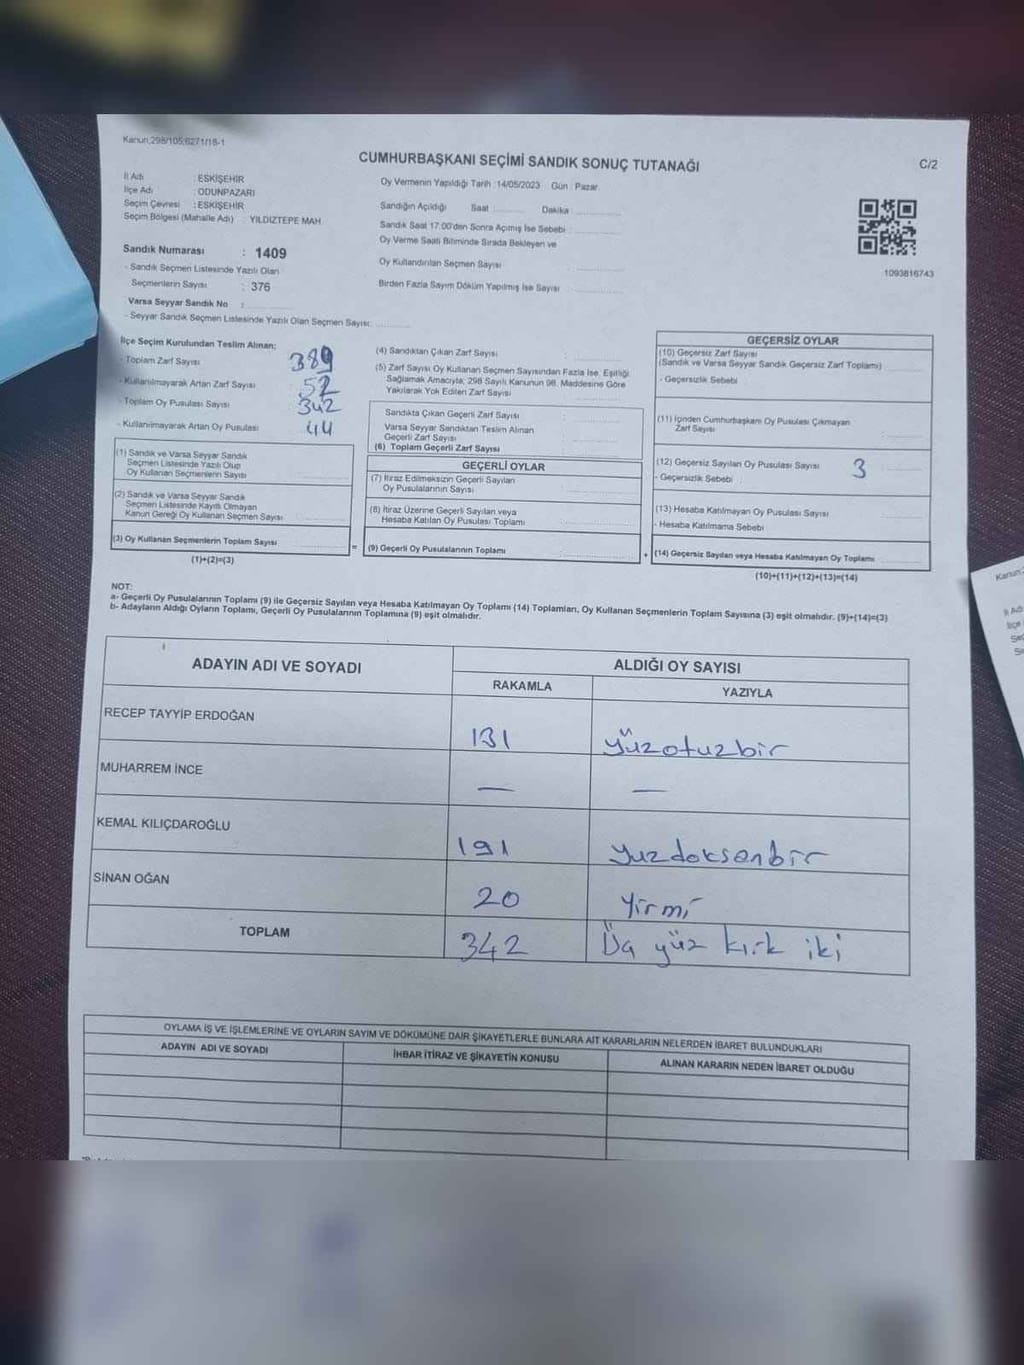 Kanun;298/105;6271/18-1
CUMHURBAŞKANI SEÇİMİ SANDIK SONUÇ TUTANAĞI
C/2
İl Adı : ESKİŞEHİR
İlçe Adı : ODUNPAZARI
Seçim Çevresi : ESKİŞEHİR
Seçim Bölgesi (Mahalle Adı) : YILDIZTEPE MAH.
Sandık Numarası : 1409
- Sandık Seçmen Listesinde Yazılı Olan
Seçmenlerin Sayısı : 376
Varsa Seyyar Sandık No :
- Seyyar Sandık Seçmen Listesinde Yazılı Olan Seçmen Sayısı:
Oy Vermenin Yapıldığı Tarih :14/05/2023 Gün : Pazar
Sandığın Açıldığı Saat Dakika :
Sandık Saat 17.00'den Sonra Açılmış İse Sebebi :
Oy Verme Saati Bitiminde Sırada Bekleyen ve
Oy Kullandırılan Seçmen Sayısı :
Birden Fazla Sayım Döküm Yapılmış İse Sayısı :
1093816743
İlçe Seçim Kurulundan Teslim Alınan;
- Toplam Zarf Sayısı 389
- Kullanılmayarak Artan Zarf Sayısı 52
- Toplam Oy Pusulası Sayısı 342
- Kullanılmayarak Artan Oy Pusulası 44
(1) Sandık ve Varsa Seyyar Sandık
Seçmen Listesinde Yazılı Olup
Oy Kullanan Seçmenlerin Sayısı
(2) Sandık ve Varsa Seyyar Sandık
Seçmen Listesinde Kayıtlı Olmayan
Kanun Gereği Oy Kullanan Seçmen Sayısı
(3) Oy Kullanan Seçmenlerin Toplam Sayısı
(1)+(2)=(3)
(4) Sandıktan Çıkan Zarf Sayısı :
(5) Zarf Sayısı Oy Kullanan Seçmen Sayısından Fazla İse, Eşitliği
Sağlamak Amacıyla; 298 Sayılı Kanunun 98. Maddesine Göre
Yakılarak Yok Edilen Zarf Sayısı :
Sandıkta Çıkan Geçerli Zarf Sayısı :
Varsa Seyyar Sandıktan Teslim Alınan
Geçerli Zarf Sayısı :
(6) Toplam Geçerli Zarf Sayısı :
GEÇERLİ OYLAR
(7) İtiraz Edilmeksizin Geçerli Sayılan
Oy Pusulalarının Sayısı :
(8) İtiraz Üzerine Geçerli Sayılan veya
Hesaba Katılan Oy Pusulası Toplamı :
= (9) Geçerli Oy Pusulalarının Toplamı :
GEÇERSİZ OYLAR
(10) Geçersiz Zarf Sayısı
(Sandık ve Varsa Seyyar Sandık Geçersiz Zarf Toplamı) :
- Geçersizlik Sebebi :
(11) İçinden Cumhurbaşkanı Oy Pusulası Çıkmayan
Zarf Sayısı :
(12) Geçersiz Sayılan Oy Pusulası Sayısı : 3
- Geçersizlik Sebebi :
(13) Hesaba Katılmayan Oy Pusulası Sayısı :
- Hesaba Katılmama Sebebi :
+ (14) Geçersiz Sayılan veya Hesaba Katılmayan Oy Toplamı :
(10)+(11)+(12)+(13)=(14)
NOT:
a- Geçerli Oy Pusulalarının Toplamı (9) ile Geçersiz Sayılan veya Hesaba Katılmayan Oy Toplamı (14) Toplamları, Oy Kullanan Seçmenlerin Toplam Sayısına (3) eşit olmalıdır. (9)+(14)=(3)
b- Adayların Aldığı Oyların Toplamı, Geçerli Oy Pusulalarının Toplamına (9) eşit olmalıdır.
ADAYIN ADI VE SOYADI ALDIĞI OY SAYISI
RAKAMLA YAZIYLA
RECEP TAYYİP ERDOĞAN 131 yüzotuzbir
MUHARREM İNCE — —
KEMAL KILIÇDAROĞLU 191 yuzdoksanbir
SİNAN OĞAN 20 yirmi
TOPLAM 342 Üç yüz kırk iki
OYLAMA İŞ VE İŞLEMLERİNE VE OYLARIN SAYIM VE DÖKÜMÜNE DAİR ŞİKAYETLERLE BUNLARA AİT KARARLARIN NELERDEN İBARET BULUNDUKLARI
ADAYIN ADI VE SOYADI İHBAR İTİRAZ VE ŞİKAYETİN KONUSU ALINAN KARARIN NEDEN İBARET OLDUĞU
Kanun;
İl Adı
İlçe